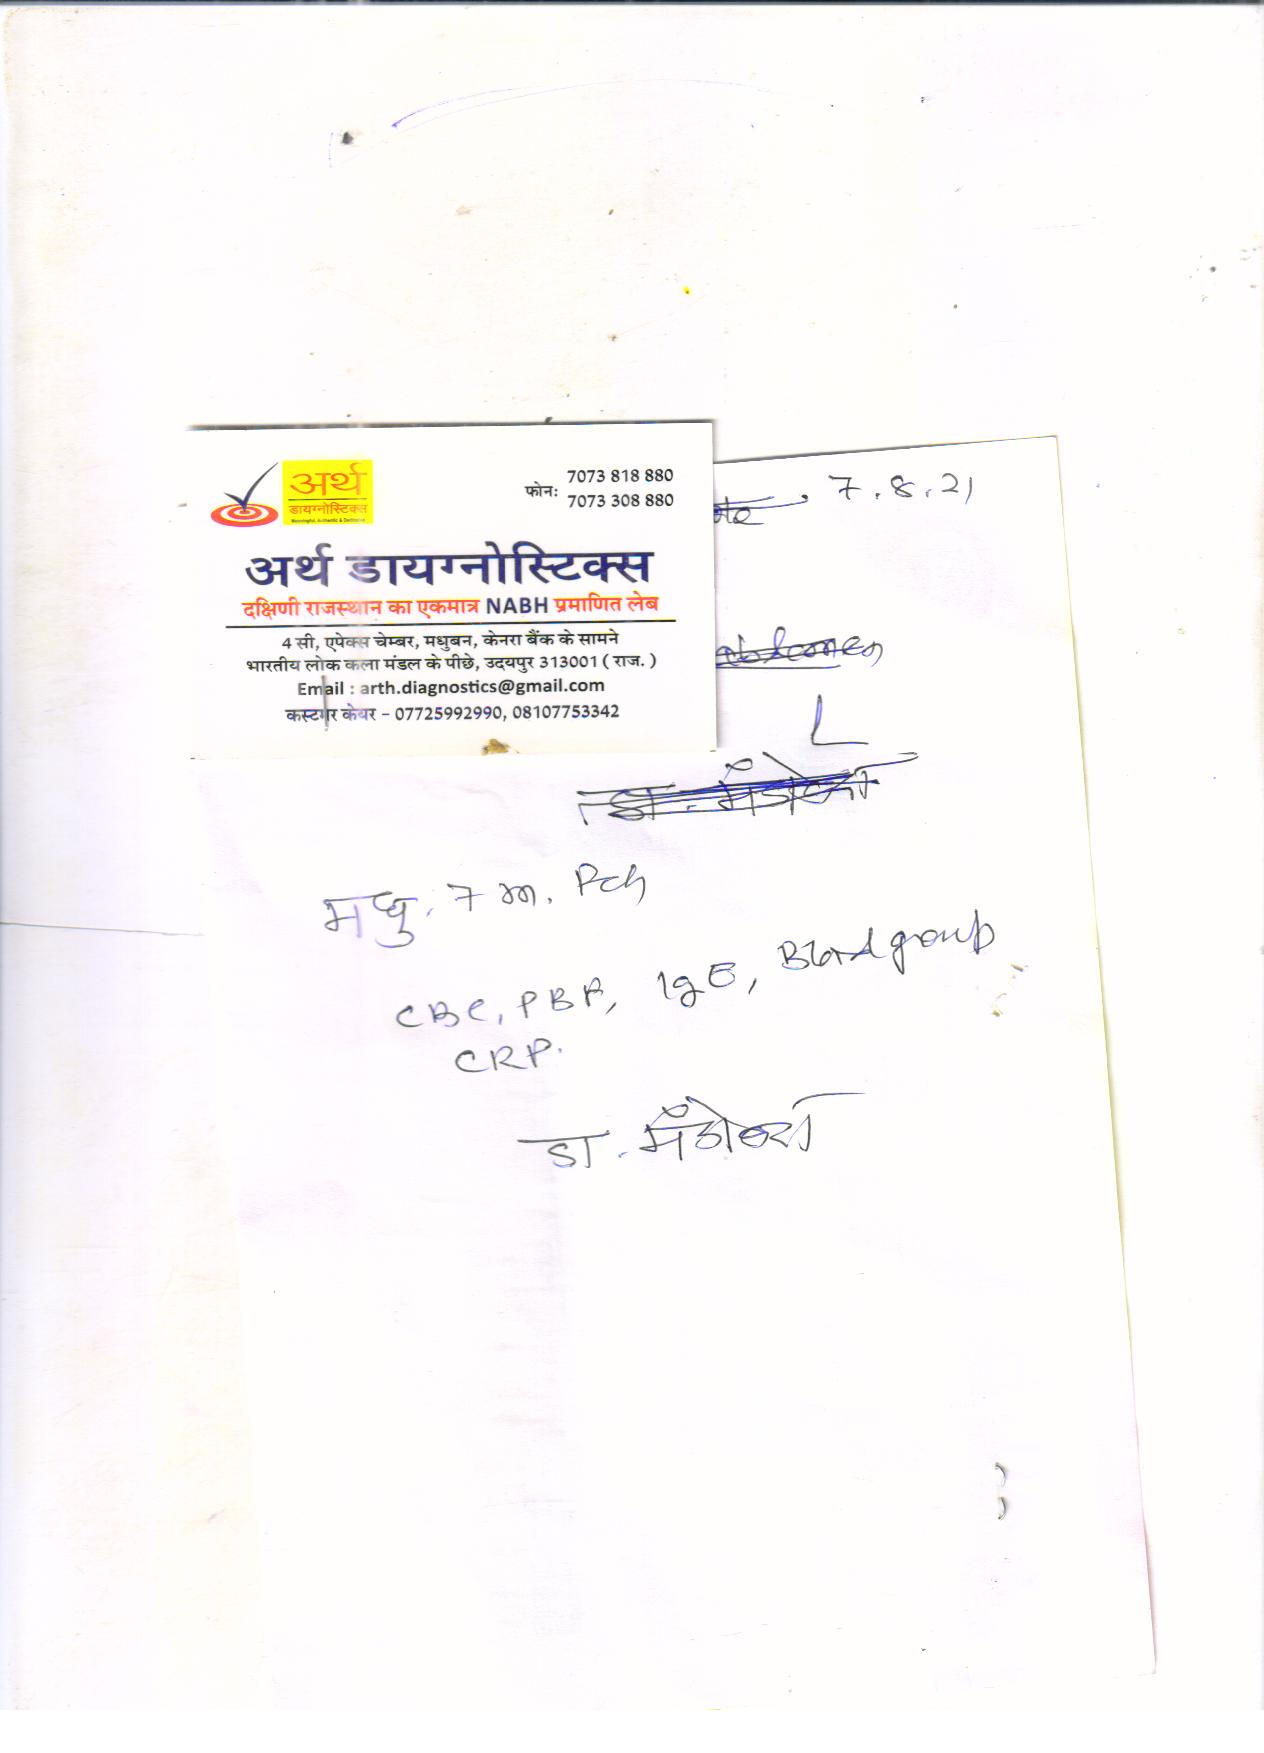 अर्थ
डायग्नोस्टिक्स
Meaningful, Authentic & Dedicated
फोनः 7073 818 880
7073 308 880
अर्थ डायग्नोस्टिक्स
दक्षिणी राजस्थान का एकमात्र NABH प्रमाणित लेब
4 सी, एपेक्स चेम्बर, मधुबन, केनरा बैंक के सामने
भारतीय लोक कला मंडल के पीछे, उदयपुर 313001 ( राज. )
Email : arth.diagnostics@gmail.com
कस्टमर केयर – 07725992990, 08107753342
7.8.21
abdomen
मधु. 7
CBC, PBF, IgE, Blood group
CRP.
डा.